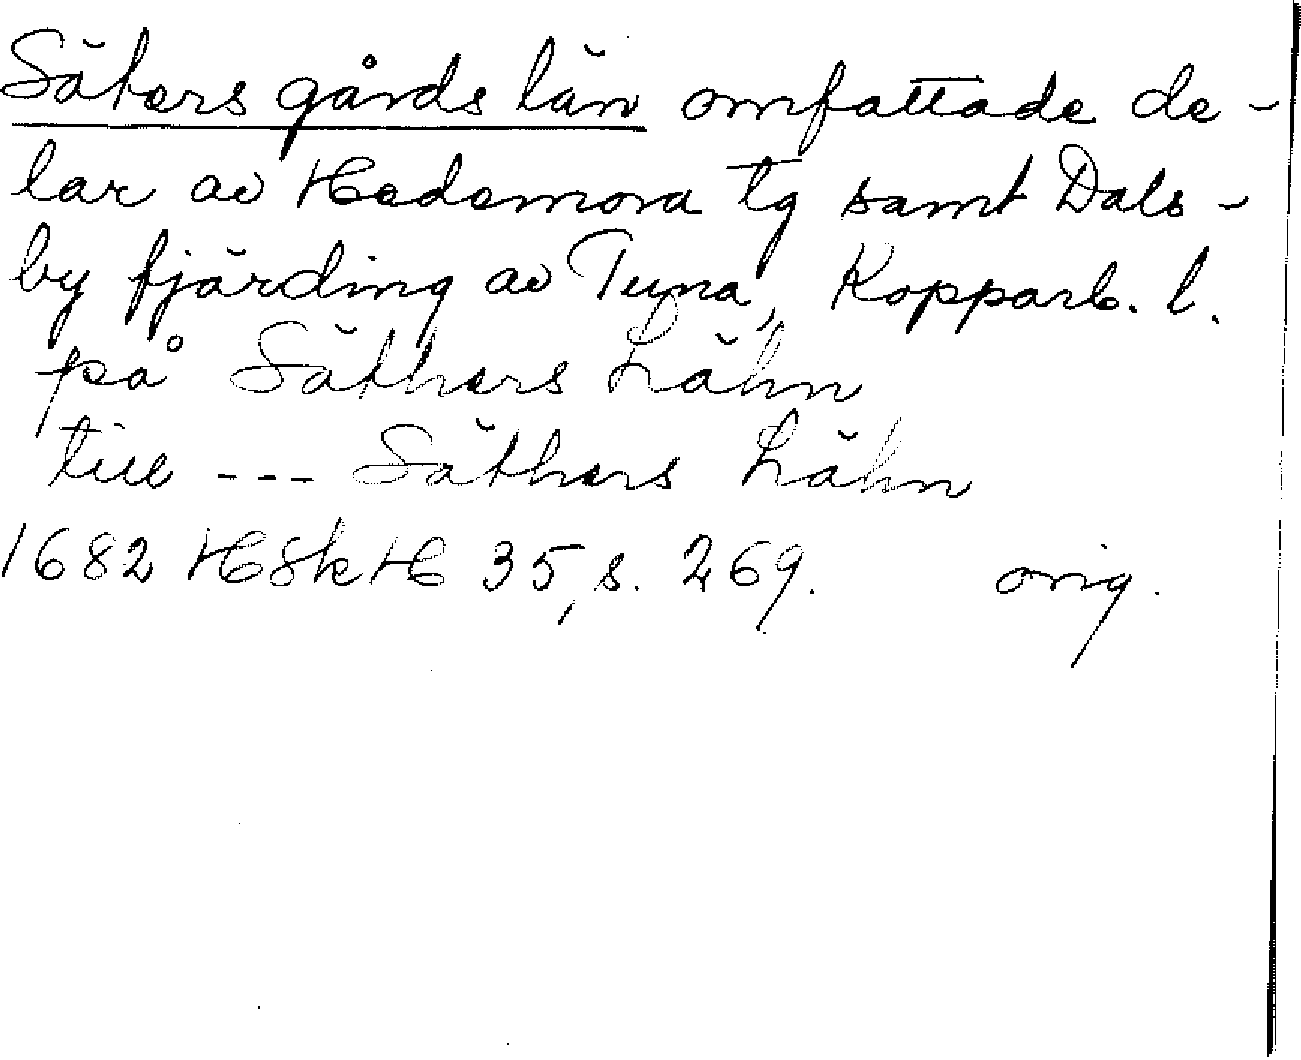 Säters gårds län omfattade de-
lar av Hedemora tg samt Dals-
by fjärding av Tuna, Kopparb. l.
på Säthers Lähn
till --- Säthers Lähn
1682 HSkH 35, s. 269. orig.